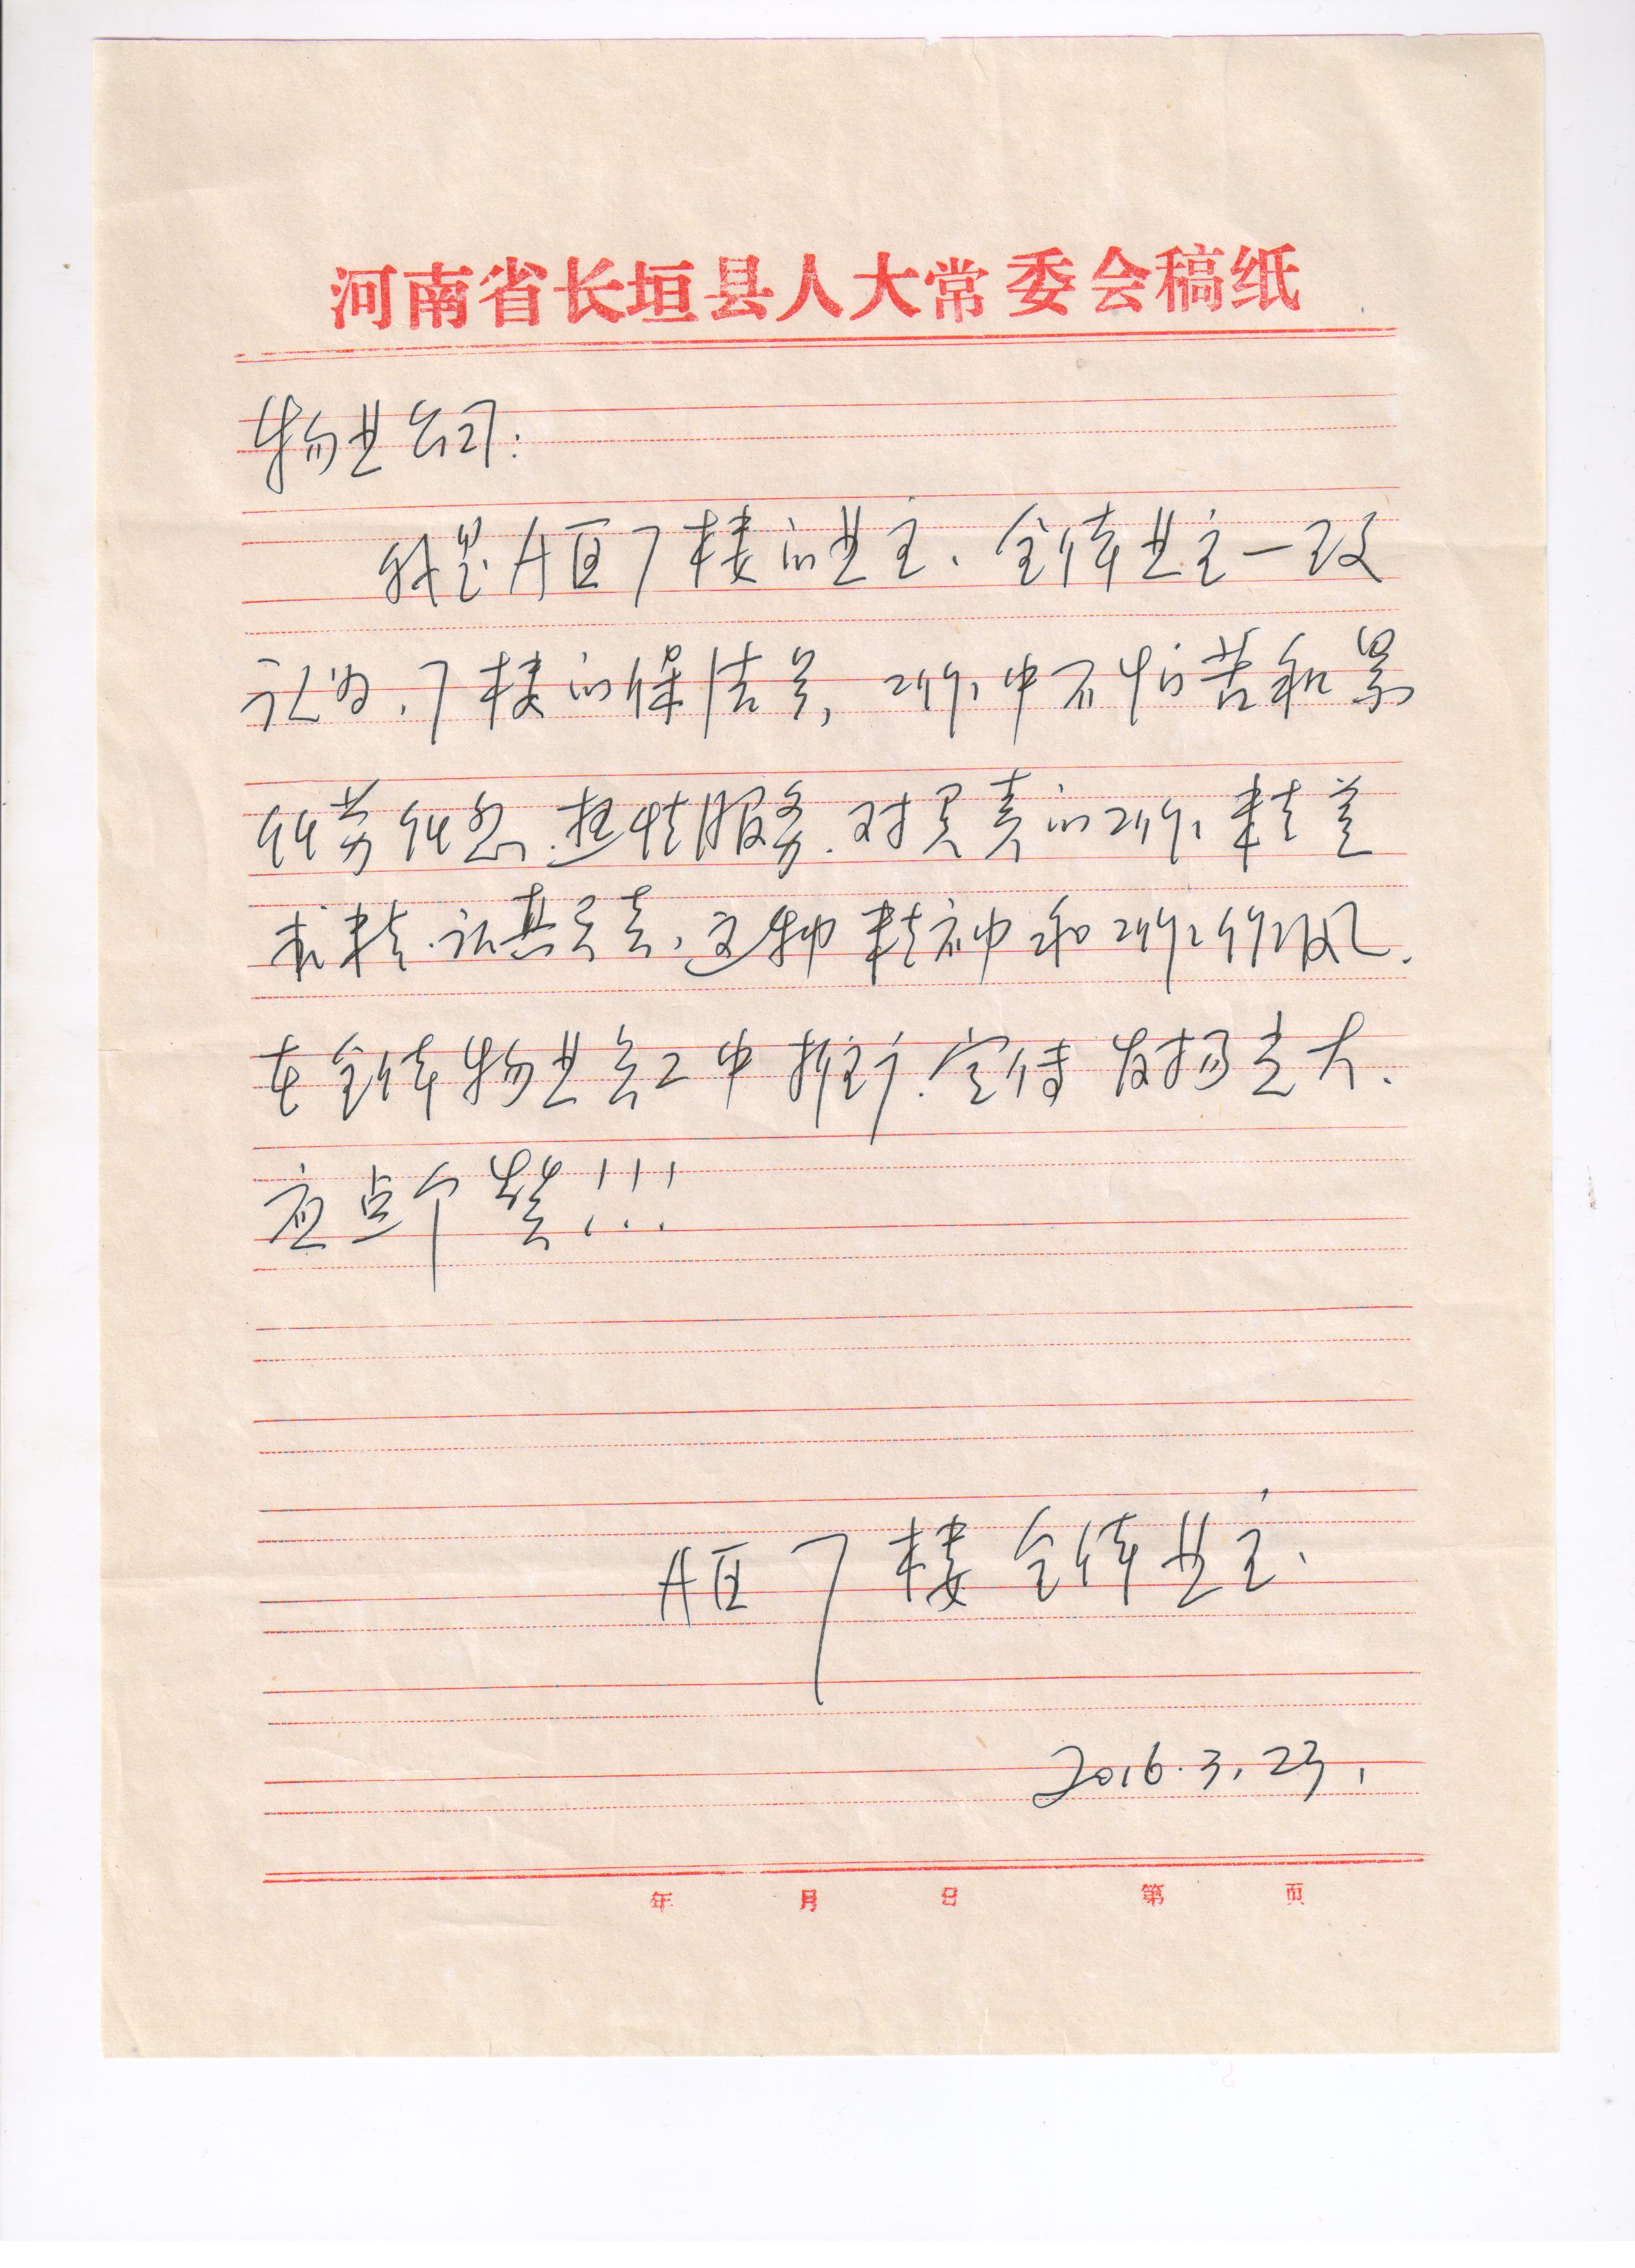 河南省长垣县人大常委会稿纸
物业公司:
我是A区7楼的业主、全体业主一致
认为,7楼的保洁员,工作中不怕苦和累
任劳任怨.热情服务.对负责的工作精益
求精.认真负责,这种精神和工作作风.
在全体物业员工中推行.宣传发扬光大.
应点个赞!!!
A区7楼全体业主、
2016.3.23,
年 月 日 第 页